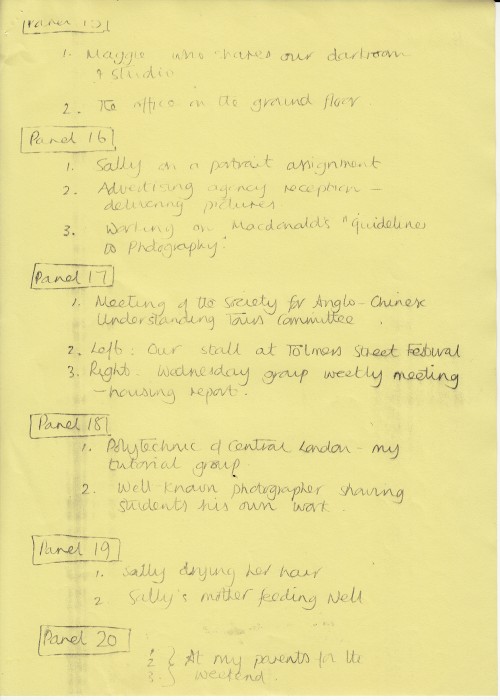 Panel 15
1. Maggie who shares our darkroom
& studio
2. The office on the ground floor.
Panel 16
1. Sally on a portrait assignment
2. Advertising agency reception –
delivering pictures
3. Working on Macdonald's "Guidelines
to Photography".
Panel 17
1. Meeting of the Society for Anglo-Chinese
Understanding Tours Committee.
2. Left: Our stall at Tolmers Street Festival
3. Right: Wednesday group weekly meeting
– housing report.
Panel 18
1. Polytechnic of Central London – my
tutorial group.
2. Well known photographer showing
students his own work.
Panel 19
1. Sally drying her hair
2 Sally's mother feeding Nell
Panel 20
1
2 { At my parents for the
3. weekend.